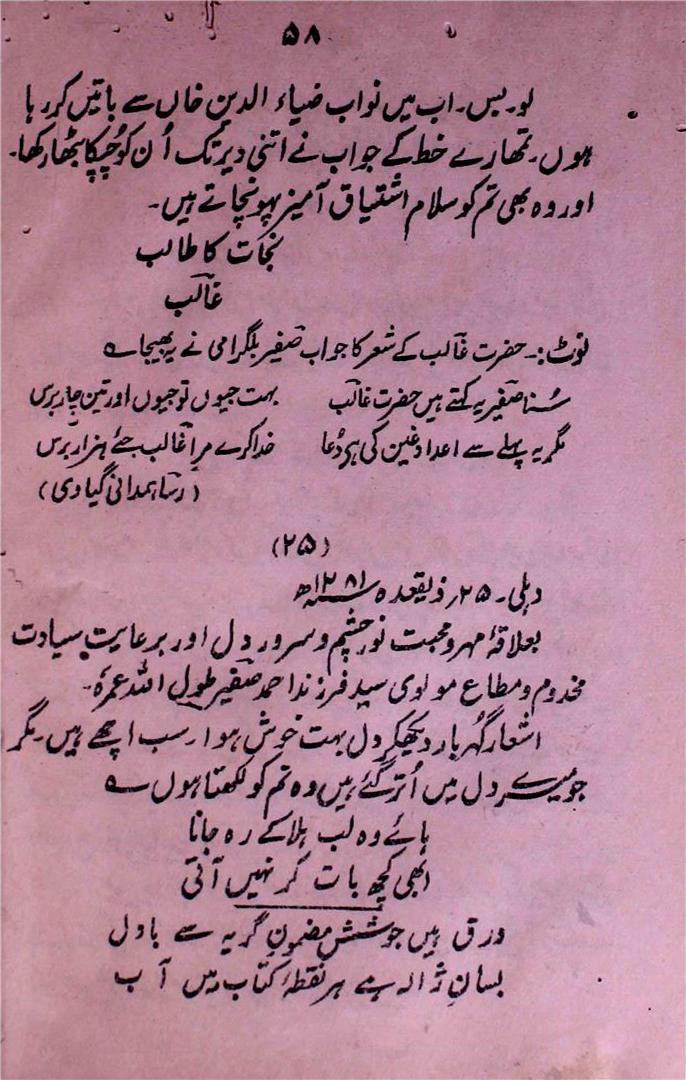 ۵۸
لو۔ بس۔ اب میں نواب ضیاء الدین خاں سے باتیں کر رہا
ہوں۔ تمھارے خط کے جواب نے اتنی دیر تک اُن کو چُپکا بٹھا رکھا۔
اور وہ بھی تم کو سلام اشتیاق آمیز پہونچاتے ہیں۔
نجات کا طالب
غالب
نوٹ:۔ حضرت غالب کے شعر کا جواب صفیر بلگرامی نے یہ بھیجا ہے
سُنا صفیر یہ کہتے ہیں حضرت غالب بہت جیوں تو جیوں اور تین چار برس
مگر یہ پہلے سے اعداد غین کی ہے دُعا خدا کرے مرا غالب جئے ہزار برس
(رسا ہمدانی گیاوی)
(۲۵)
دہلی۔ ۲۵؍ ذیقعدہ ۱۲۸۱ھ
بعلاقۂ مہر و محبت نور چشم و سرور دل اور برعایت سیادت
مخدوم و مطاع مولوی سید فرزند احمد صفیر طول اللہ عمرہٗ۔
اشعار گہر بار دیکھکر دل بہت خوش ہوا۔ سب اچھے ہیں۔ مگر
جو میرے دل میں اُتر گئے ہیں وہ تم کو لکھتا ہوں ؎
ہائے وہ لب ہلا کے رہ جانا
ابھی کچھ بات کر نہیں آتی
ورق ہیں جوشش مضمونِ گریہ سے بادل
بسانِ ژالہ ہے ہر نقطۂ کتاب میں آب